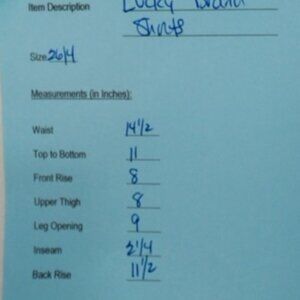 Item Description Lucky Brand
Shorts
Size: 26/4
Measurements (in Inches):
Waist 14 1/2
Top to Bottom 11
Front Rise 8
Upper Thigh 8
Leg Opening 9
Inseam 2 1/4
Back Rise 11 1/2